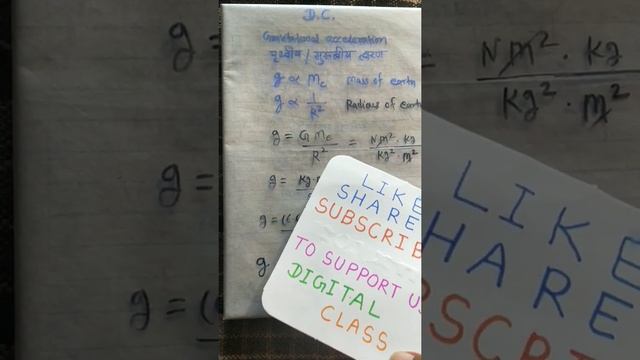 D.C.
Gravitational acceleration
पृथ्वीय / गुरुत्वीय त्वरण
g ∝ Me Mass of earth
g ∝ 1/R² Radius of earth
g = GMe/R² = Nm²·Kg/Kg²·m²
g = Kg
g = (6
g
LIKE
SHARE
SUBSCRIB
TO SUPPORT US
DIGITAL
CLASS